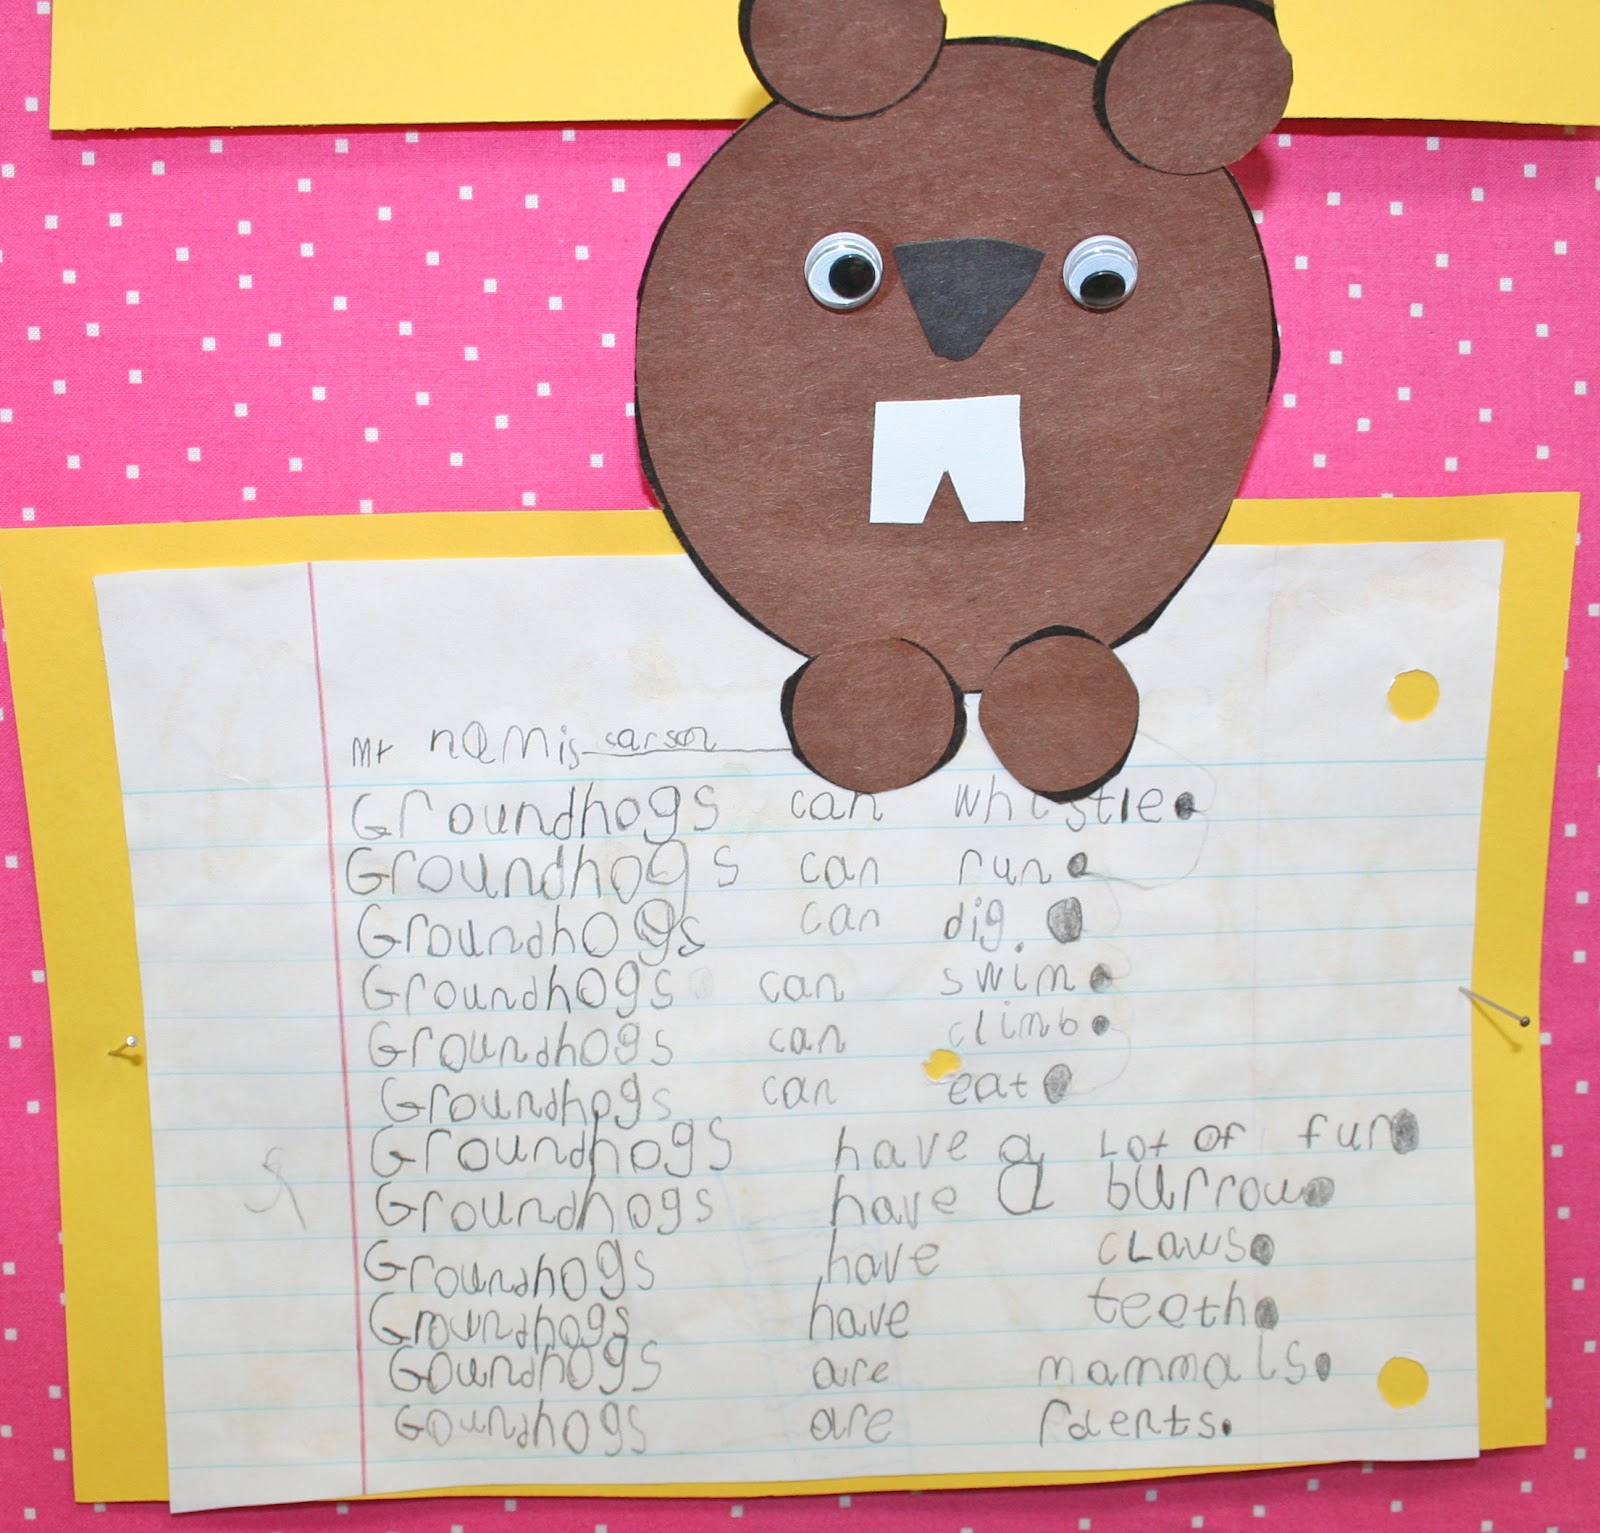 my nam is carson
Groundhogs can whistle.
Groundhogs can run.
Groundhogs can dig.
Groundhogs can swim.
Groundhogs can climb.
Groundhogs can eat.
Groundhogs have a Lot of fun.
Groundhogs have a burrow.
Groundhogs have cLaws.
Groundhogs have teeth.
Goundhogs are mammals.
Goundhogs are rdents.